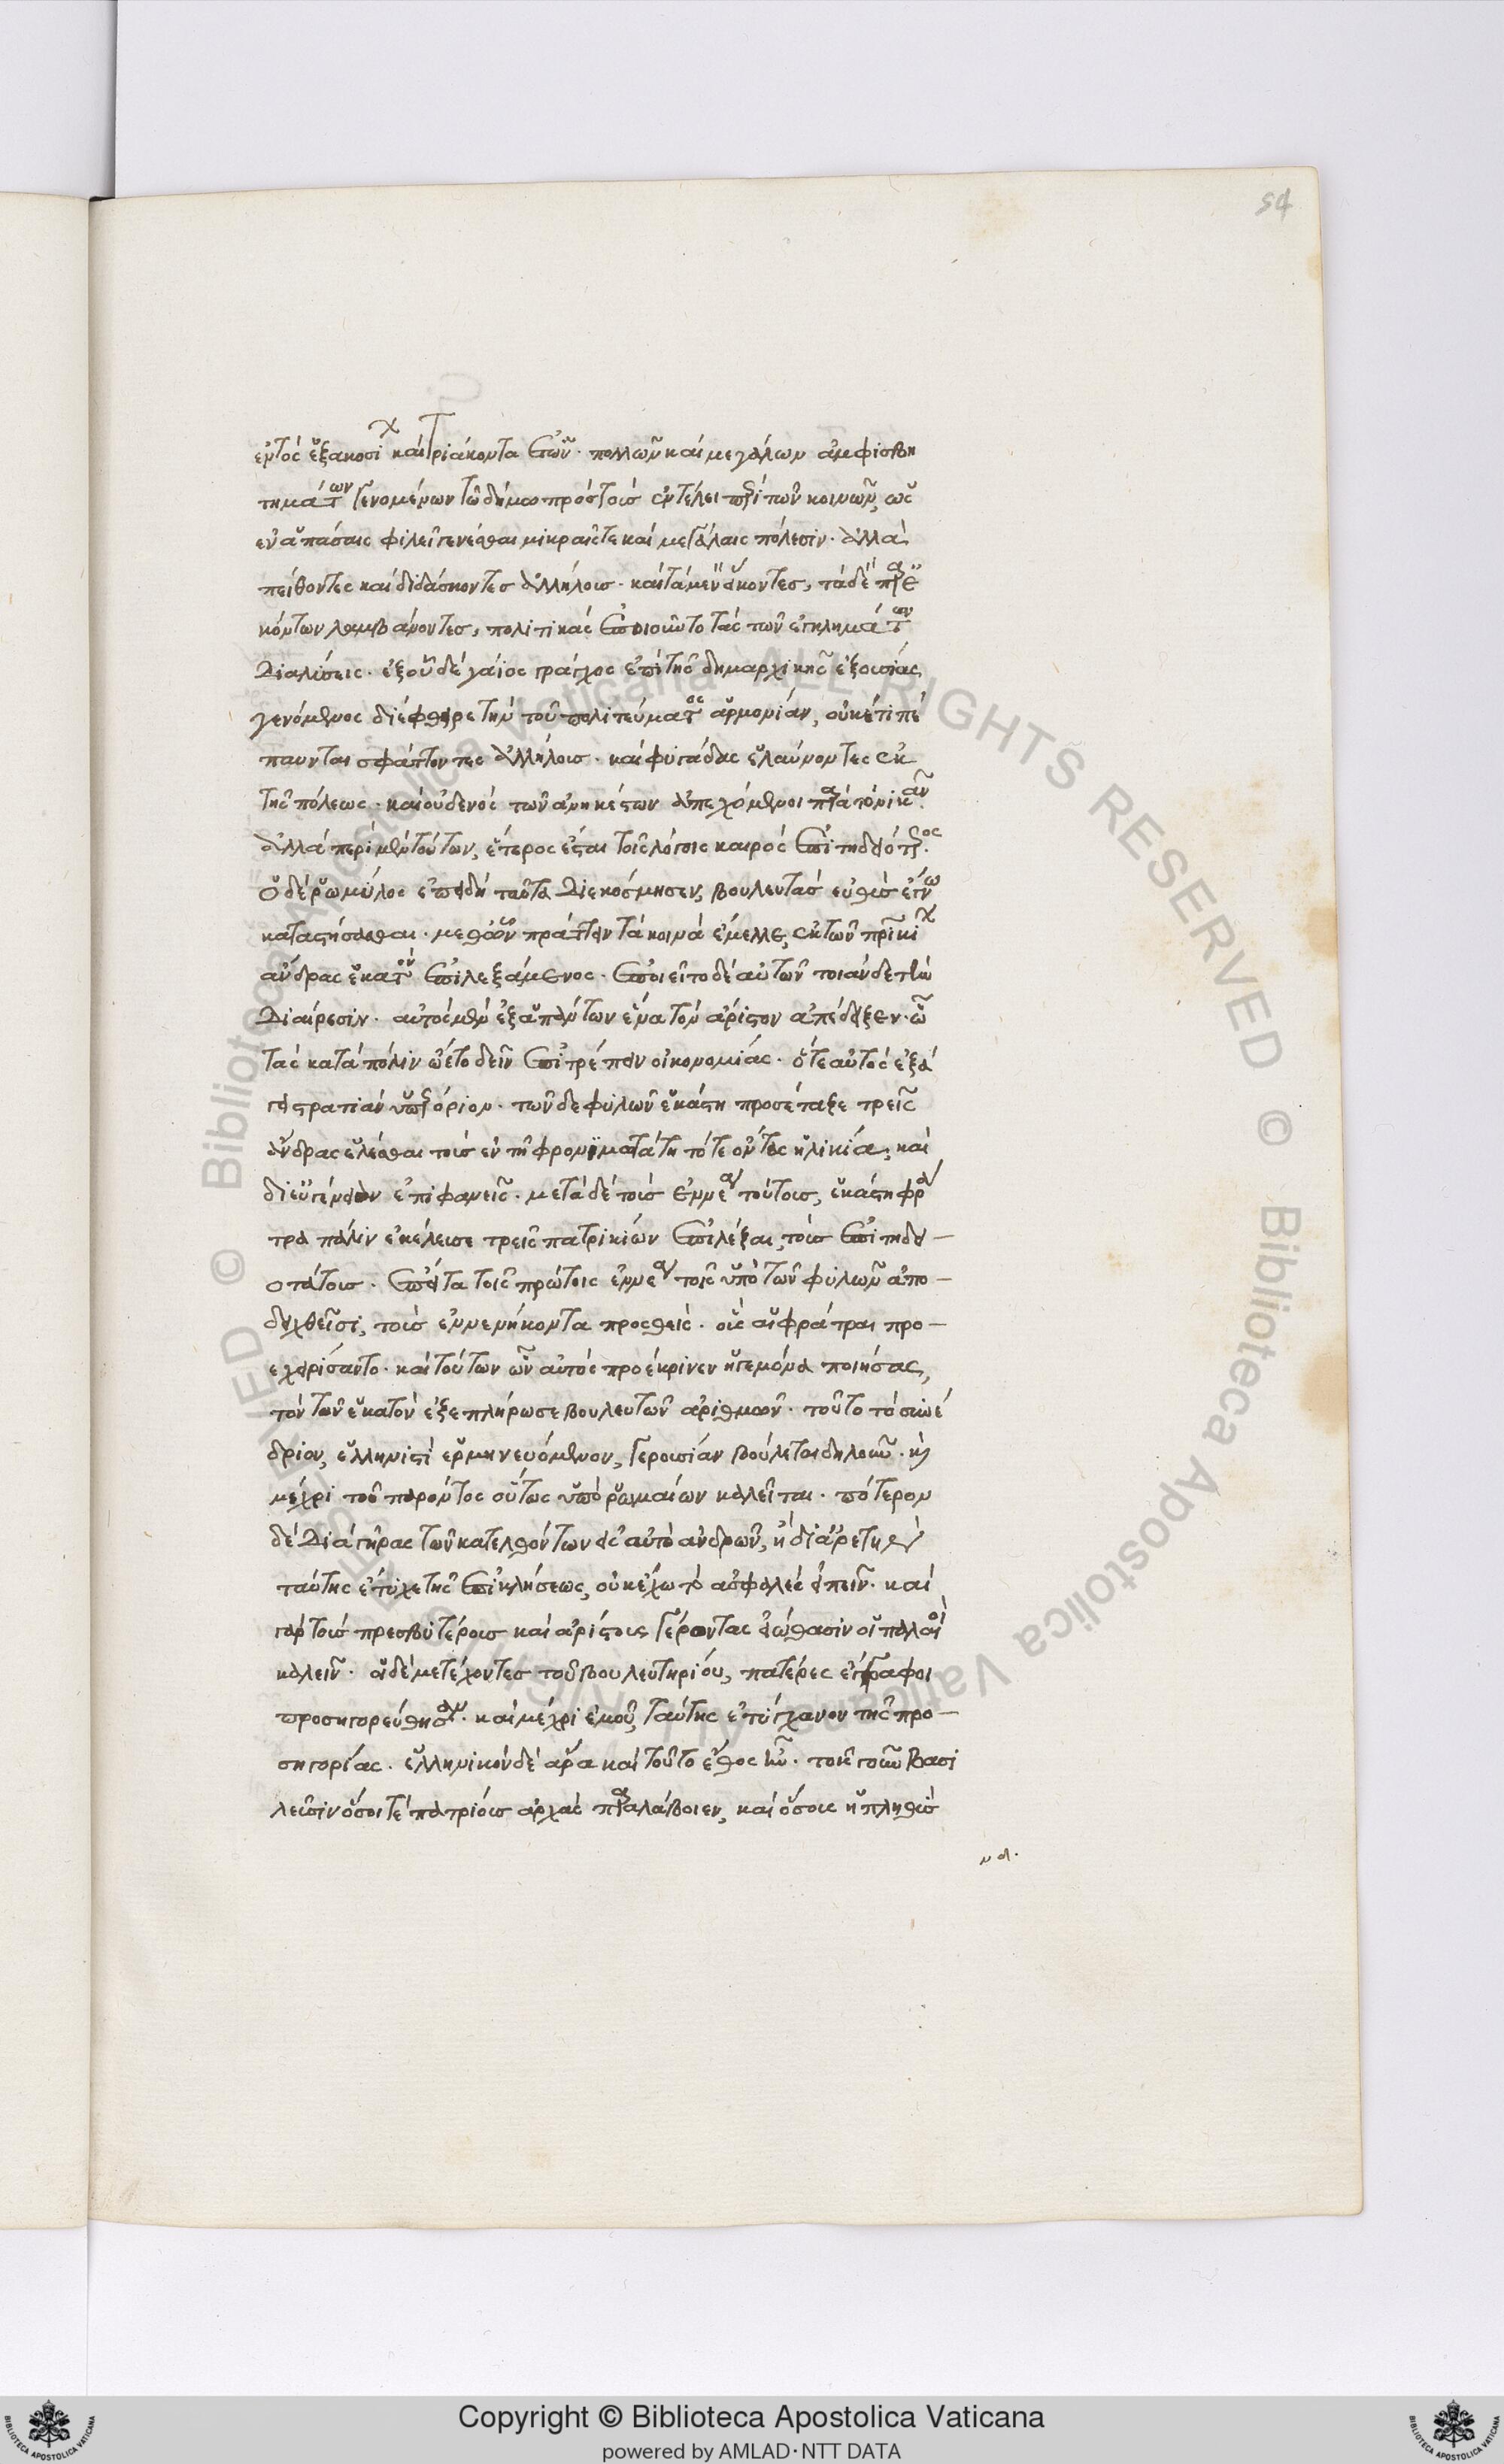 54
ἐντὸς ἑξακοσίων καὶ τριάκοντα ἐτῶν· πολλῶν καὶ μεγάλων ἀμφισβη
τημάτων γενομένων τῷ δήμῳ πρὸς τοὺς ἐν τέλει περὶ τῶν κοινῶν, ὡς
ἐν ἁπάσαις φιλεῖ γενέσθαι μικραῖς τε καὶ μεγάλαις πόλεσιν· ἀλλὰ
πείθοντες καὶ διδάσκοντες ἀλλήλους· καὶ τὰ μὲν εἴκοντες, τὰ δὲ παρ' εἰ
κόντων λαμβάνοντες, πολιτικὰς ἐποιοῦντο τὰς τῶν ἐγκλημάτων
διαλύσεις· ἐξ οὗ δὲ γάϊος γράγχος ἐπὶ τῆς δημαρχικῆς ἐξουσίας
γενόμενος διέφθειρε τὴν τοῦ πολιτεύματος ἁρμονίαν, οὐκέτι πέ
παυνται σφάττοντες ἀλλήλους· καὶ φυγάδας ἐλαύνοντες ἐκ
τῆς πόλεως· καὶ οὐδενὸς τῶν ἀνηκέστων ἀπεχόμενοι παρὰ τὸ νικᾶν·
ἀλλὰ περὶ μὲν τούτων, ἕτερος ἔσται τοῖς λόγοις καιρὸς ἐπιτηδειότερος·
ὁ δὲ ῥωμύλος ἐπειδὴ ταῦτα διεκόσμησεν, βουλευτὰς εὐθὺς ἔγνω
καταστήσασθαι· μεθ' ὧν πράττειν τὰ κοινὰ ἔμελλε, ἐκ τῶν πατρικίων
ἄνδρας ἑκατὸν ἐπιλεξάμενος· ἐποιεῖτο δὲ αὐτῶν τοιάνδε τὴν
διαίρεσιν· αὐτὸς μὲν ἐξ ἁπάντων ἕνα τὸν ἄριστον ἀπέδειξεν· ᾧ
τὰς κατὰ πόλιν ᾤετο δεῖν ἐπιτρέπειν οἰκονομίας· ὅτε αὐτὸς ἐξά
γει στρατιὰν ὑπερόριον· τῶν δὲ φυλῶν ἑκάστῃ προσέταξε τρεῖς
ἄνδρας ἑλέσθαι τοὺς ἐν τῇ φρονιματάτῃ τότε ὄντας ἡλικίᾳ, καὶ
δι' εὐγένειαν ἐπιφανεῖς· μετὰ δὲ τοὺς ἐννέα τούτους, ἑκάστῃ φρά
τρᾳ πάλιν ἐκέλευσε τρεῖς πατρικίων ἐπιλέξαι, τοὺς ἐπιτηδει-
οτάτους· ἔπειτα τοῖς πρώτοις ἐννέα τοῖς ὑπὸ τῶν φυλῶν ἀπο-
δειχθεῖσι, τοὺς ἐννενήκοντα προσθεὶς· οὓς αἱ φράτραι προ-
εχειρίσαντο· καὶ τούτων ὧν αὐτὸς προέκρινεν ἡγεμόνα ποιήσας,
τὸν τῶν ἑκατὸν ἐξεπλήρωσε βουλευτῶν ἀριθμόν· τοῦτο τὸ συνέ
δριον, ἑλληνιστὶ ἑρμηνευόμενον, γερουσίαν βούλεται δηλοῦν· καὶ
μέχρι τοῦ παρόντος οὕτως ὑπὸ ῥωμαίων καλεῖται· πότερον
δὲ διὰ γῆρας τῶν κατελθόντων εἰς αὐτὸ ἀνδρῶν, ἢ δι' ἀρετὴν
ταύτης ἔτυχε τῆς ἐπικλήσεως, οὐκ ἔχω τὸ ἀσφαλὲς εἰπεῖν· καὶ
γὰρ τοὺς πρεσβυτέρους καὶ ἀρίστους γέροντας εἰώθασιν οἱ παλαιοὶ
καλεῖν· οἱ δὲ μετέχοντες τοῦ βουλευτηρίου, πατέρες ἔγγραφοι
προσηγορεύθησαν· καὶ μέχρι ἐμοῦ, ταύτης ἐτύγχανον τῆς προ-
σηγορίας· ἑλληνικὸν δὲ ἄρα καὶ τοῦτο ἔθος ἦν· τοῖς γοῦν βασι
λεῦσιν ὅσοι τὲ πατρίους ἀρχὰς παραλάβοιεν, καὶ ὅσους ἡ πληθὺς
Copyright © Biblioteca Apostolica Vaticana
powered by AMLAD·NTT DATA